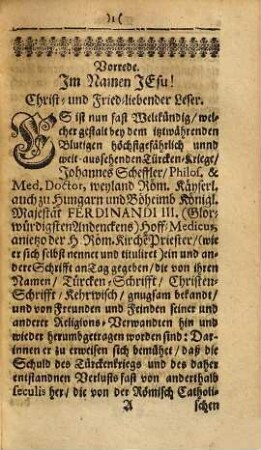 )1(
Vorrede.
Im Namen JEsu!
Christ- und Fried-liebender Leser.
ES ist nun fast Weltkündig/ wel-
cher gestalt bey dem itztwährenden
Blutigen höchstgefährlich unnd
weit-aussehenden Türcken-Kriege/
Johannes Scheffler/ Philos. &
Med. Doctor, weyland Röm. Käyserl.
auch zu Hungarn und Böheimb Königl.
Majestät FERDINANDI III. (Glor-
würdigsten Andenckens) Hoff/ Medicus,
anietzo der H. Röm. Kirchẽ Priester/ (wie
er sich selbst nennet und tituliret) ein und an-
dere Schrifft an Tag gegeben/ die von ihren
Namen/ Türcken-Schrifft/ Christen-
Schrifft/ Kehrwisch/ gnugsam bekandt/
und von Freunden und Feinden seiner und
anderer Religions-Verwandten hin und
wieder herumbgetragen worden sind: Dar-
innen er zu erweisen sich bemühet/ daß die
Schuld des Türckenkriegs und des daher
entstandnen Verlusts fast von anderthalb
seculis her/ die von der Römisch Catholi-
A schen